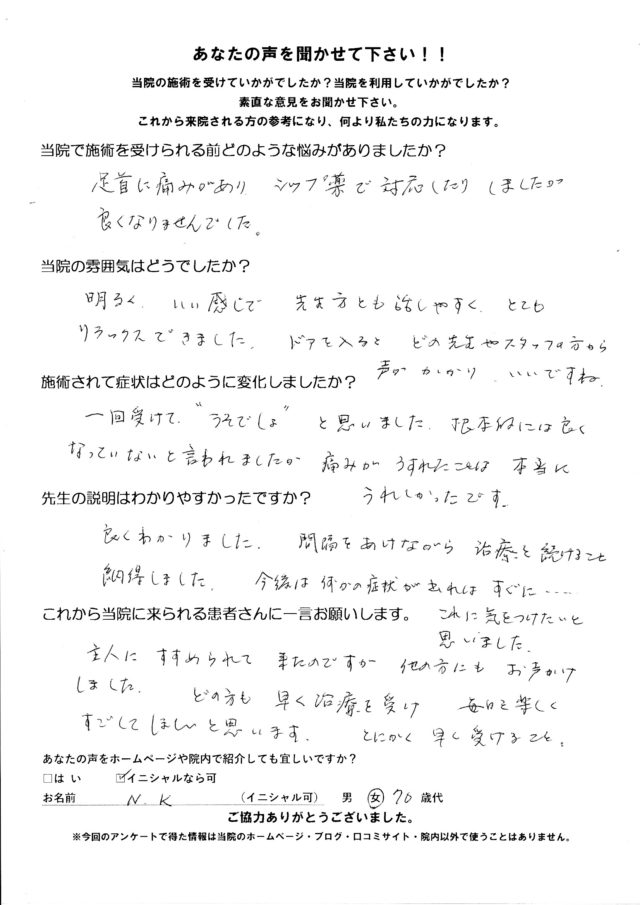 あなたの声を聞かせて下さい！！
当院の施術を受けていかがでしたか？当院を利用していかがでしたか？
素直な意見をお聞かせ下さい。
これから来院される方の参考になり、何より私たちの力になります。
当院で施術を受けられる前どのような悩みがありましたか？
足首に痛みがあり シップ薬で対応したり しましたが
良くなりませんでした。
当院の雰囲気はどうでしたか？
明るく、いい感じで 先生方とも話しやすく、とても
リラックスできました。 ドアを入ると どの先生やスタッフの方から
声が かかり、いいですね。
施術されて症状はどのように変化しましたか？
一回受けて、“うそでしょ” と思いました。根本的には良く
なっていないと言われましたが 痛みが うすれたことは 本当に
うれしかったです。
先生の説明はわかりやすかったですか？
良くわかりました。 間隔をあけながら 治療を続けること
納得しました。 今後は何かの症状が出れば すぐに……
これに気をつけたいと
思いました。
これから当院に来られる患者さんに一言お願いします。
主人に すすめられて 来たのですが 他の方にも お声かけ
しました。 どの方も 早く治療を受け 毎日を楽しく
すごしてほしいと思います。 とにかく早く受けること。
あなたの声をホームページや院内で紹介しても宜しいですか？
□は い ☑イニシャルなら可
お名前 N.K （イニシャル可） 男 女 70 歳代
ご協力ありがとうございました。
※今回のアンケートで得た情報は当院のホームページ・ブログ・口コミサイト・院内以外で使うことはありません。